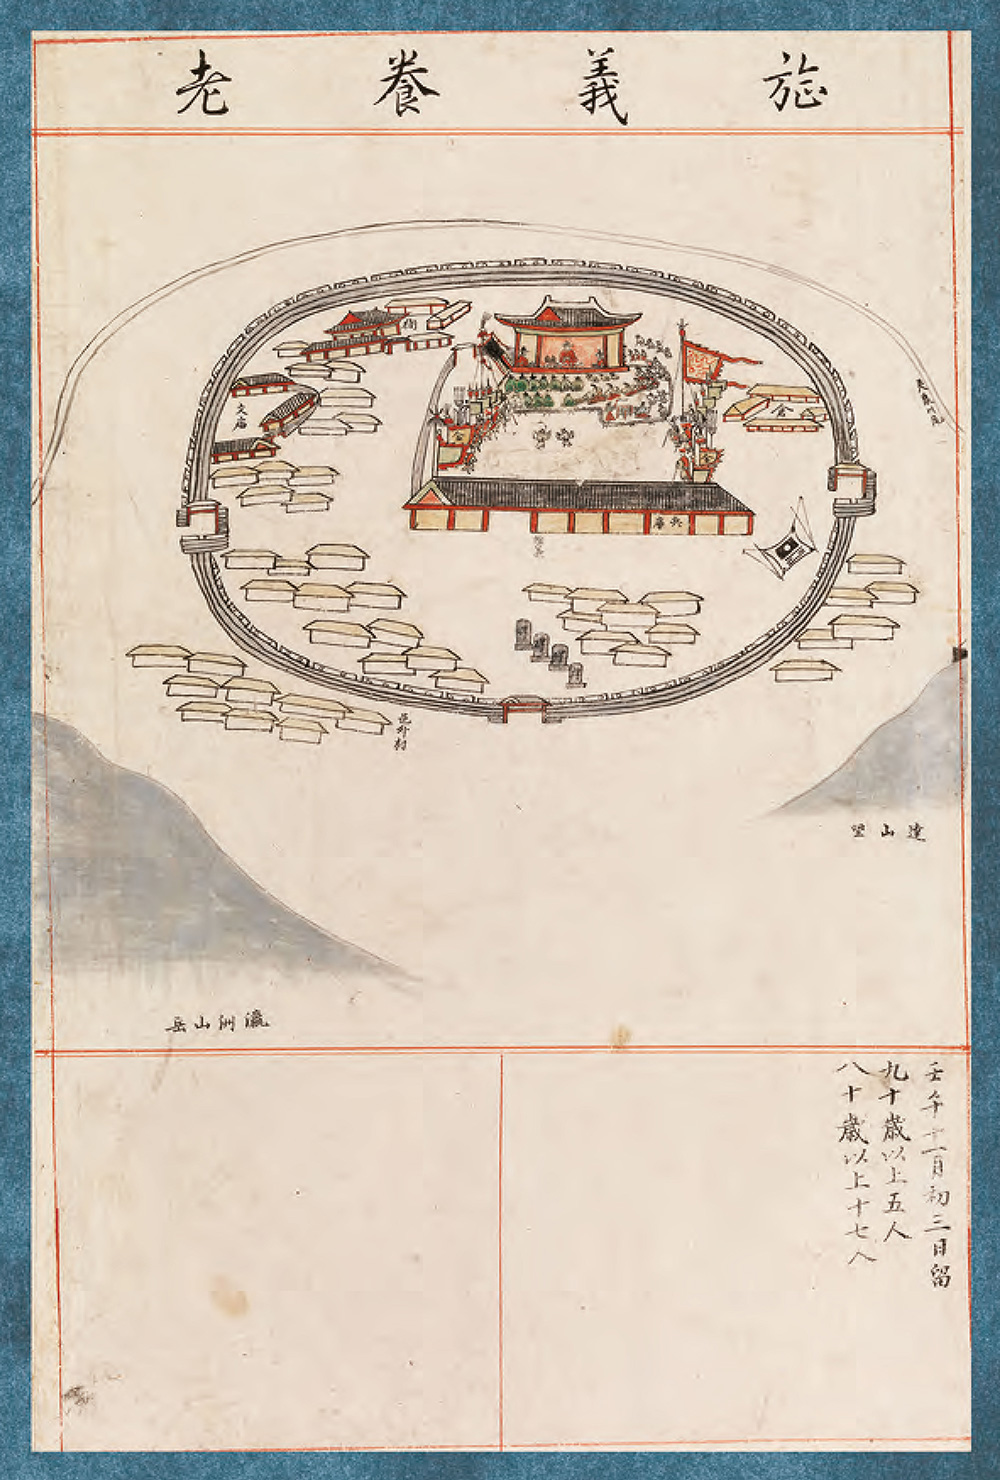 旌義養老
衙
文庙
舍
兵庫
邑外村
達山望
瀛洲山岳
壬午十一月初三日留
九十歲以上五人
八十歲以上十七人